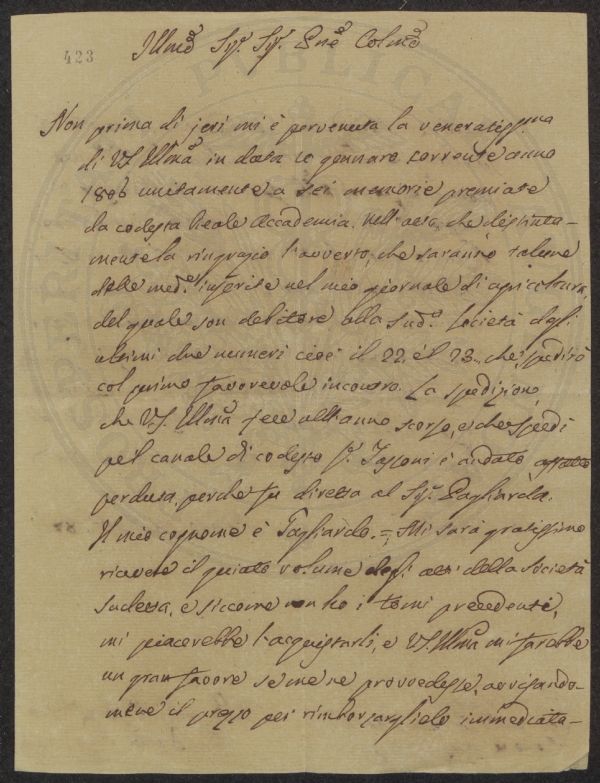 423
Illmo Sigr. Sigr. Pne Colmo
Non prima di jeri mi è pervenuta la veneratissima
di VS. Illma in data 10 gennaro corrente anno
1806 unitamente a sei memorie premiate
da codesta Reale Accademia. Nell'atto, che distinta-
mente la ringrazio l'avverto, che saranno talune
delle medº inserite nel mio giornale di agricoltura,
del quale son debitore alla sudª Società degli
ultimi due numeri cioè il 22, è l 23. che spedirò
col primo favorevole incontro. La spedizione,
che VS. Illma fece all'anno scorso, e che spedì
pel canale di codesto Sr. Tassoni è andato affatto
perduta, perche fu diretta al Sigr. Pagliarila.
Il mio cognome è Tagliarilo. = Mi sarà gratissimo
ricevere il quinto volume degli atti della Società
sudessa, e siccome non ho i tomi precedenti,
mi piacerebbe l'acquistarli, e VS. Illma mi farebbe
un gran favore se me ne provvedesse, avvisando-
mene il prezzo per rimborzarglielo immediata-